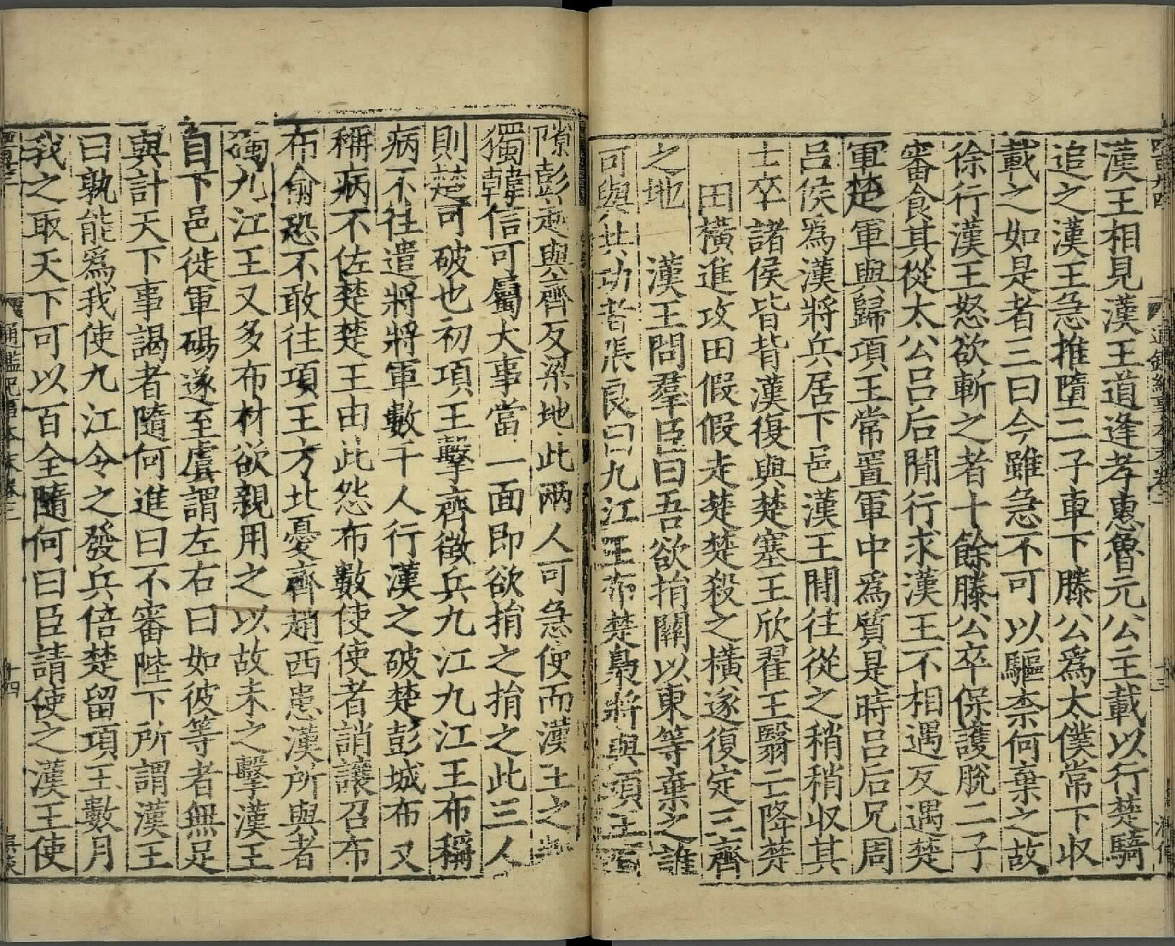 漢王相見漢王道逢孝惠魯元公主載以行楚騎
追之漢王急推墮二子車下滕公爲太僕常下收
載之如是者三曰今雖急不可以驅柰何棄之故
徐行漢王怒欲斬之者十餘滕公卒保護脫二子
審食其從太公吕后閒行求漢王不相遇反遇楚
軍楚軍與歸項王常置軍中爲質是時吕后兄周
吕侯爲漢將兵居下邑漢王閒往從之稍稍收其
士卒諸侯皆背漢復與楚塞王欣翟王翳亡降楚
田橫進攻田假假走楚楚殺之橫遂復定三齊
之地 漢王問羣臣曰吾欲捐關以東等棄之誰
可與共功者張良曰九江王布楚梟將與項王有
隙彭越與齊反梁地此兩人可急使而漢王之將
獨韓信可屬大事當一面即欲捐之捐之此三人
則楚可破也初項王擊齊徵兵九江九江王布稱
病不往遣將將軍數千人行漢之破楚彭城布又
稱病不佐楚楚王由此怨布數使使者誚讓召布
布愈恐不敢往項王方北憂齊趙西患漢所與者
獨九江王又多布材欲親用之以故未之擊漢王
自下邑徙軍碭遂至虞謂左右曰如彼等者無足
與計天下事謁者隨何進曰不審陛下所謂漢王
曰孰能爲我使九江令之發兵倍楚留項王數月
我之取天下可以百全隨何曰臣請使之漢王使
十四